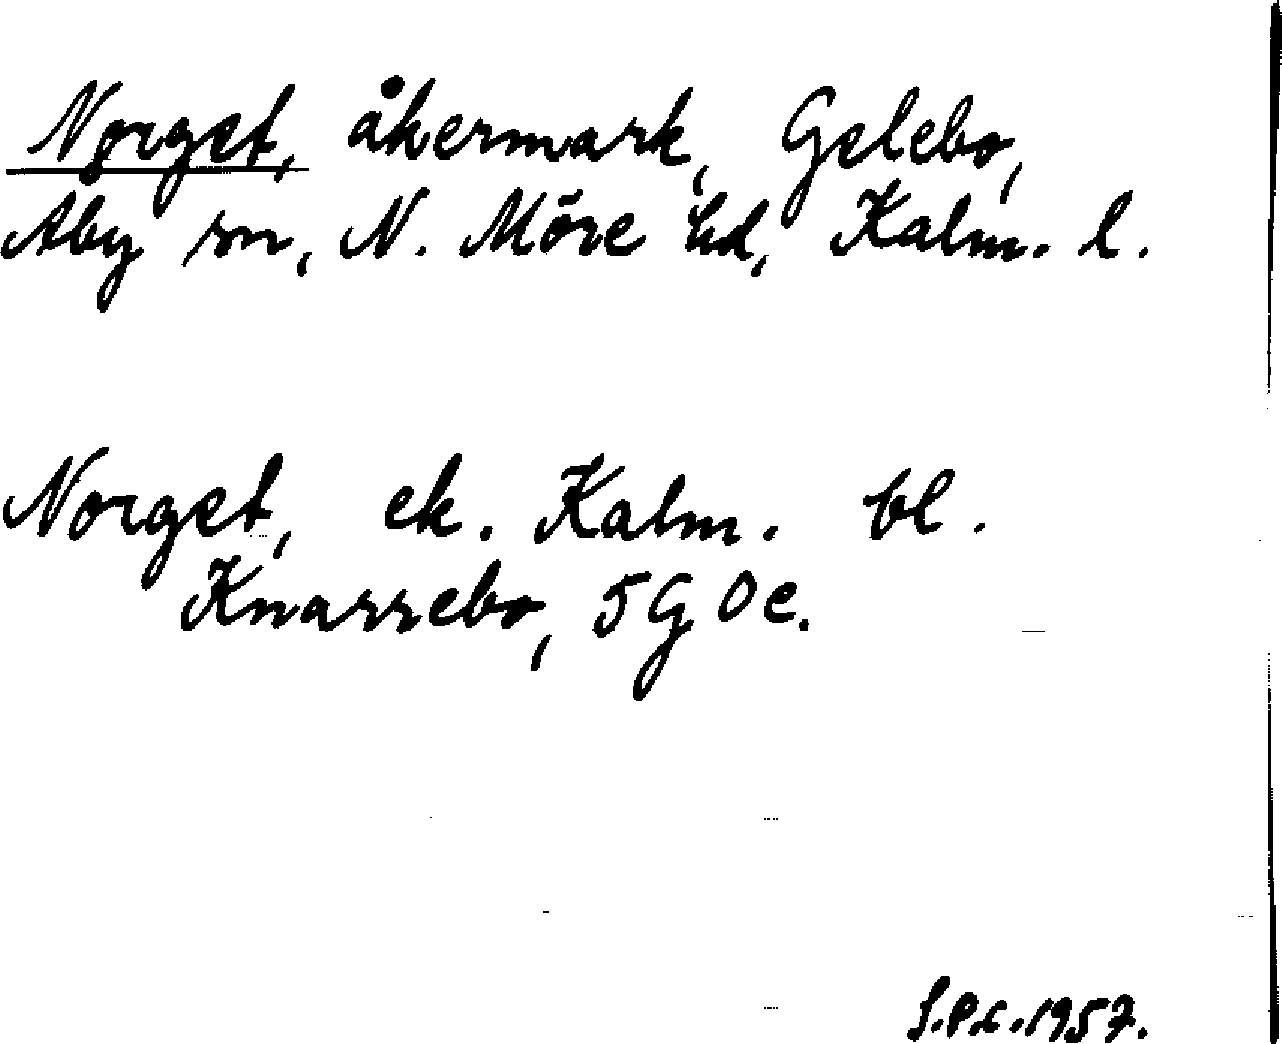 Norget, åkermark, Gelebo,
Åby sn, N. Möre hd, Kalm. l.
Norget, ek. Kalm. bl.
Knarrebo, 5G 0e.
S.P.C. 1957.